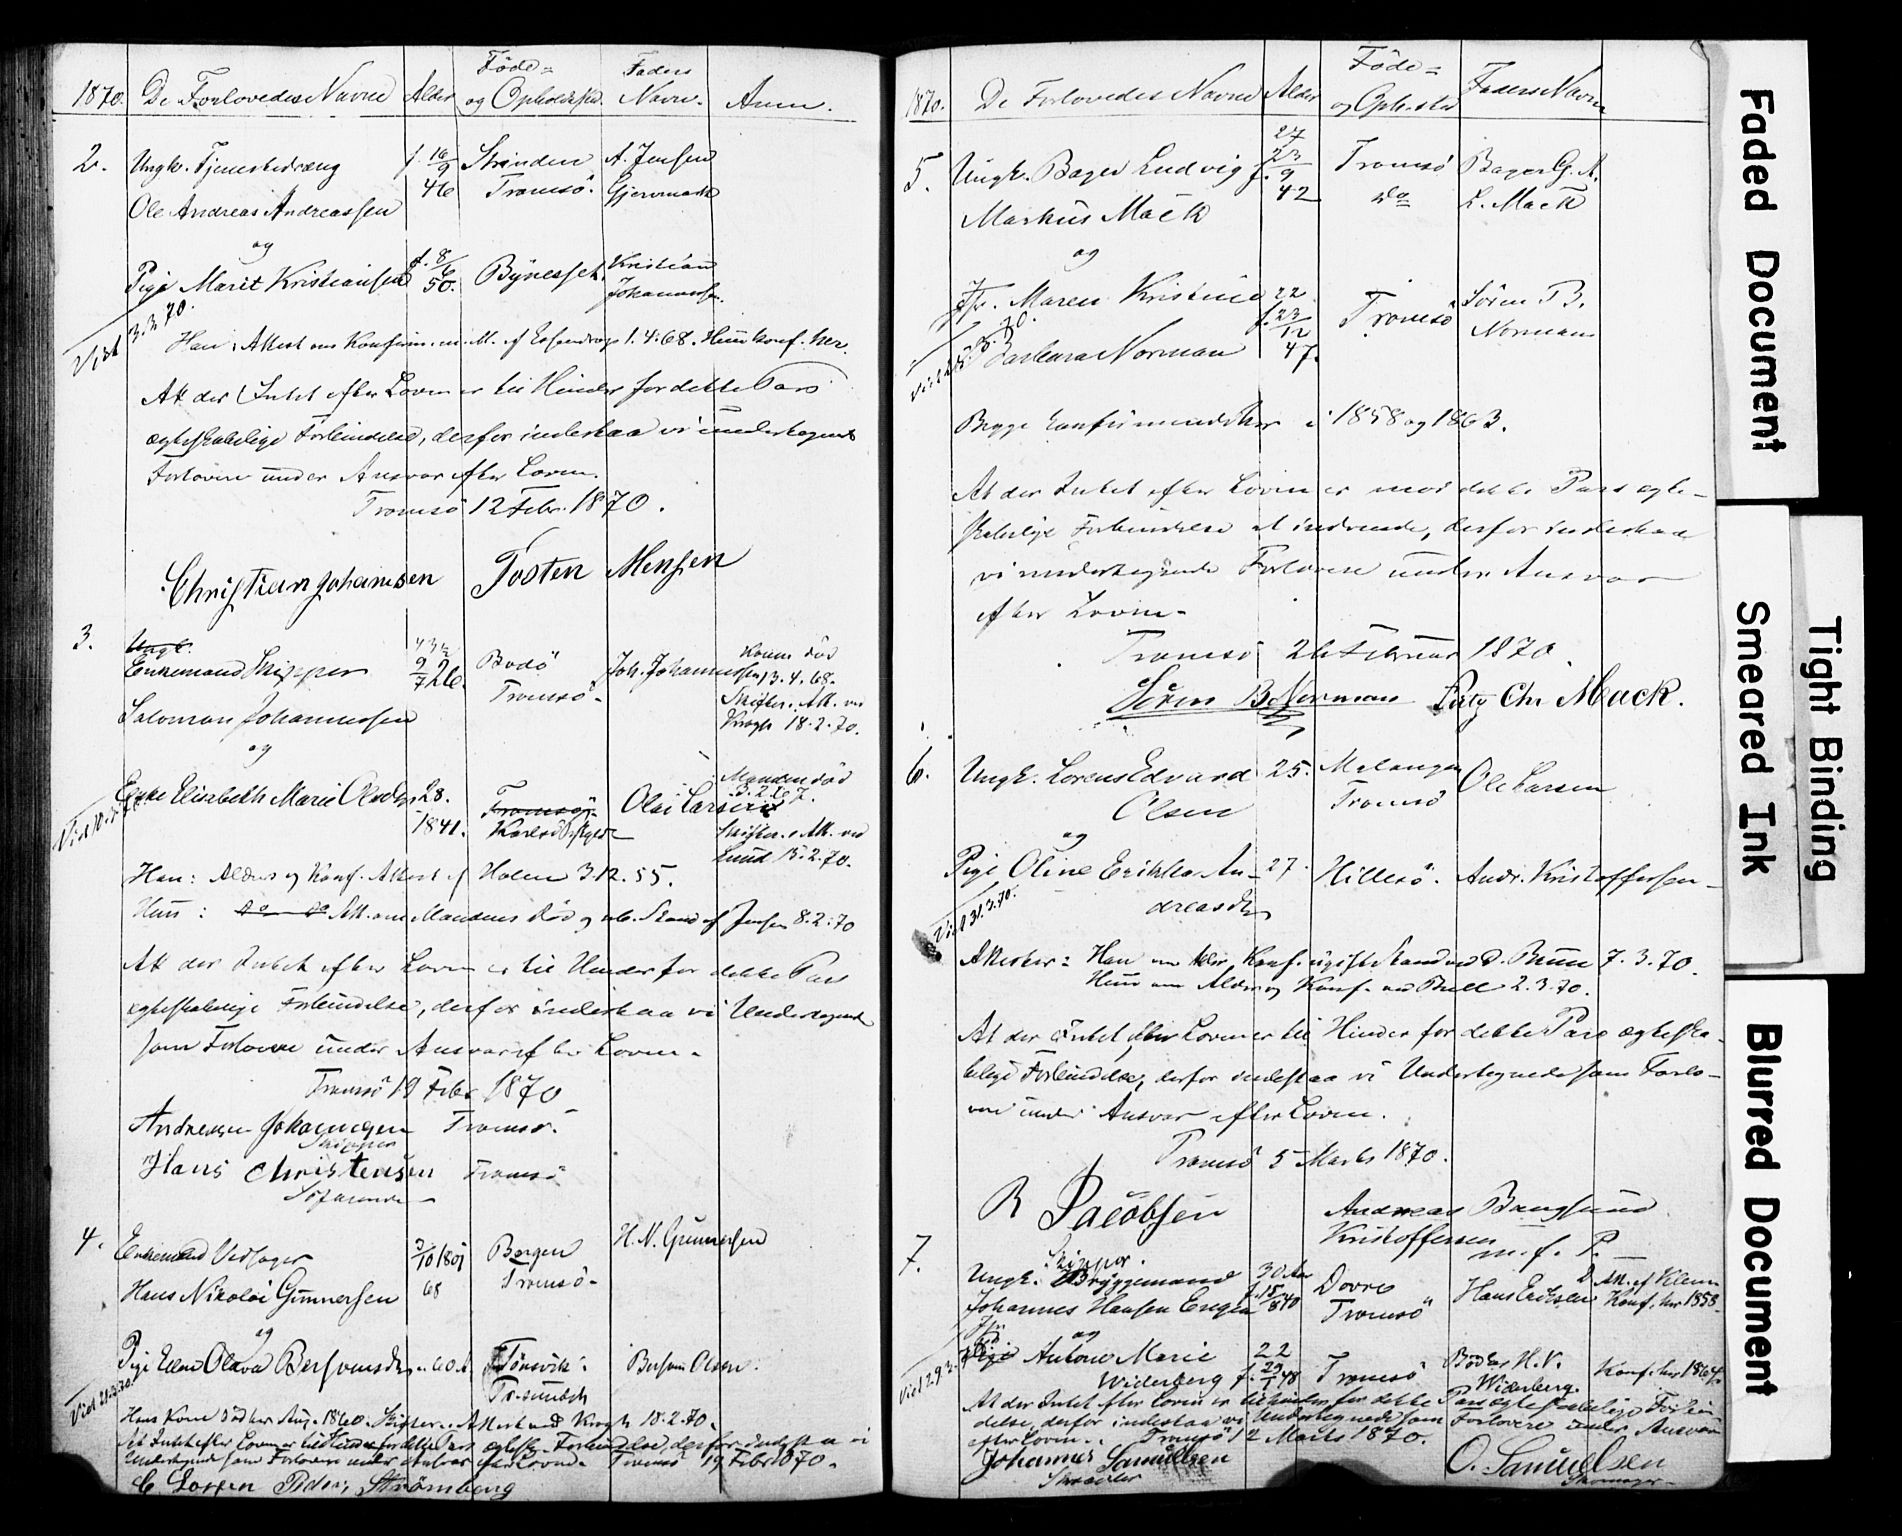 1870. De Forlovedes Navne Alder Föde= og Opholdssted. Faders Navn. Anm.
2. Ungk. Tjenestedreng f. 16/9 46 Strinden A. Jensen
Ole Andreas Andreassen Tromsö.
og
Pige Marit Kristiansen f. 8/6 50. Bynesset. Kristian Johannessen.
Viet 3.3.70.
Han: Attest om Konfirm. 1.4.68. Hun konf. her.
At der Intet efter Loven er til Hinder for dette Pars
ægteskabelige Forbindelse, derfor indestaa vi undertegnede
Forlovere under Ansvar efter Loven.
Tromsö 12 Febr. 1870.
Christian Johansen Tosten Monsen
3. Ungk.
Enkemand Skipper 43½ 9/7 26. Bodö Joh. Johannessen Konen död 13.4.68.
Salomon Johannessen Tromsö. Skifter. Att. ved Krogh 18.2.70.
og
Enke Elisabeth Marie Olsdtr. 28. 1841. Tromsö. Olai Larsen Manden död 3.2.67.
Karlsö Skifter. Att. ved Lund 15.2.70.
Han: Alders og Konf. Attest af Holm 3.12.55.
Hun: do do Att. om Mandens död og Stand af Jensen 8.2.70
At der Intet efter Loven er til Hinder for dette Pars
ægteskabelige Forbindelse, derfor indestaa vi Undertegnede
som Forlovere under Ansvar efter Loven.
Tromsö 19 Febr. 1870
Andreas Johansen Tromsö.
Skipper
Hans Christensen Tromsö
4. Enkemand Vedsager 3/10 1801 Bergen H. N. Gunnersen
Hans Nikolai Gunnersen 68 Tromsö.
og
Pige Ellen Olava Bersvensdtr. 60 A. Tönsvik. Bersven Olsen.
Tr.sundet
Hans Kone död her Aug. 1860. Skifter. Attest ved Krogh 18.2.70.
At Intet efter Loven er til Hinder for dette Pars ægtesk. Forbindelse, derfor indestaa vi
Undertegnede som Forlovere under Ansvar efter Loven. Tromsö 19 Febr 1870.
C Lossen Peder Strömberg
1870. De Forlovedes Navne Alder Föde= og Oph.sted Faders Navn
5. Ungk. Bager Ludvig 27 f. 23/9 42 Tromsö Bager G. A.
Markus Mack do L. Mack
og
Jfr. Maren Kristine 22 f. 23/12 47. Tromsö Sören B.
Barbara Norman Norman
Begge konfirmerede her i 1858 og 1863.
At der Intet efter Loven er mod dette Pars ægte-
skabelige Forbindelse at indvende, derfor indestaa
vi undertegnede Forlovere under Ansvar
efter Loven.
Tromsö 26 Februar 1870.
Sören B Norman Fritz Chr Mack.
6. Ungk. Lorens Edvard 25. Malangen Ole Larsen
Olsen Tromsö
og
Pige Oline Erikka An- 27. Hillesö. Andr. Kristoffersen
dreasdtr
Viet 31.3.70.
Attester: Han om Alder, Konf. ugifte Stand ved D. Bruun 7.3.70.
Hun om Alder og Konf. ved Bull 2.3.70.
At der Intet efter Loven er til Hinder for dette Pars ægteska-
belige Forbindelse, derfor indestaa vi Undertegnede som Forlo-
vere under Ansvar efter Loven.
Tromsö 5 Marts 1870.
R Jacobsen Andreas
Kristoffersen m. f. P.
7. Skipper.
Ungk. Bryggemand 30 Aar Dovre Att. af Klem
Johannes Hansen Engen f. 15/8 40 Tromsö Hans Eriksen Konf. her 1858
Jfr. og
Pige Antone Marie 22 Tromsö Bödker H. V. Konf. her 1864.
Widerberg f. 29/1 48 Widerberg.
At der Intet efter Loven er til Hinder for dette Pars ægteskabelige Forbin
delse, derfor indestaa vi Undertegnede som Forlovere under Ansvar
efter Loven. Tromsö 12 Marts 1870.
Johannes Samuelsen O. Samuelsen
Skrædder
Faded Document
Smeared Ink
Tight Binding
Blurred Document